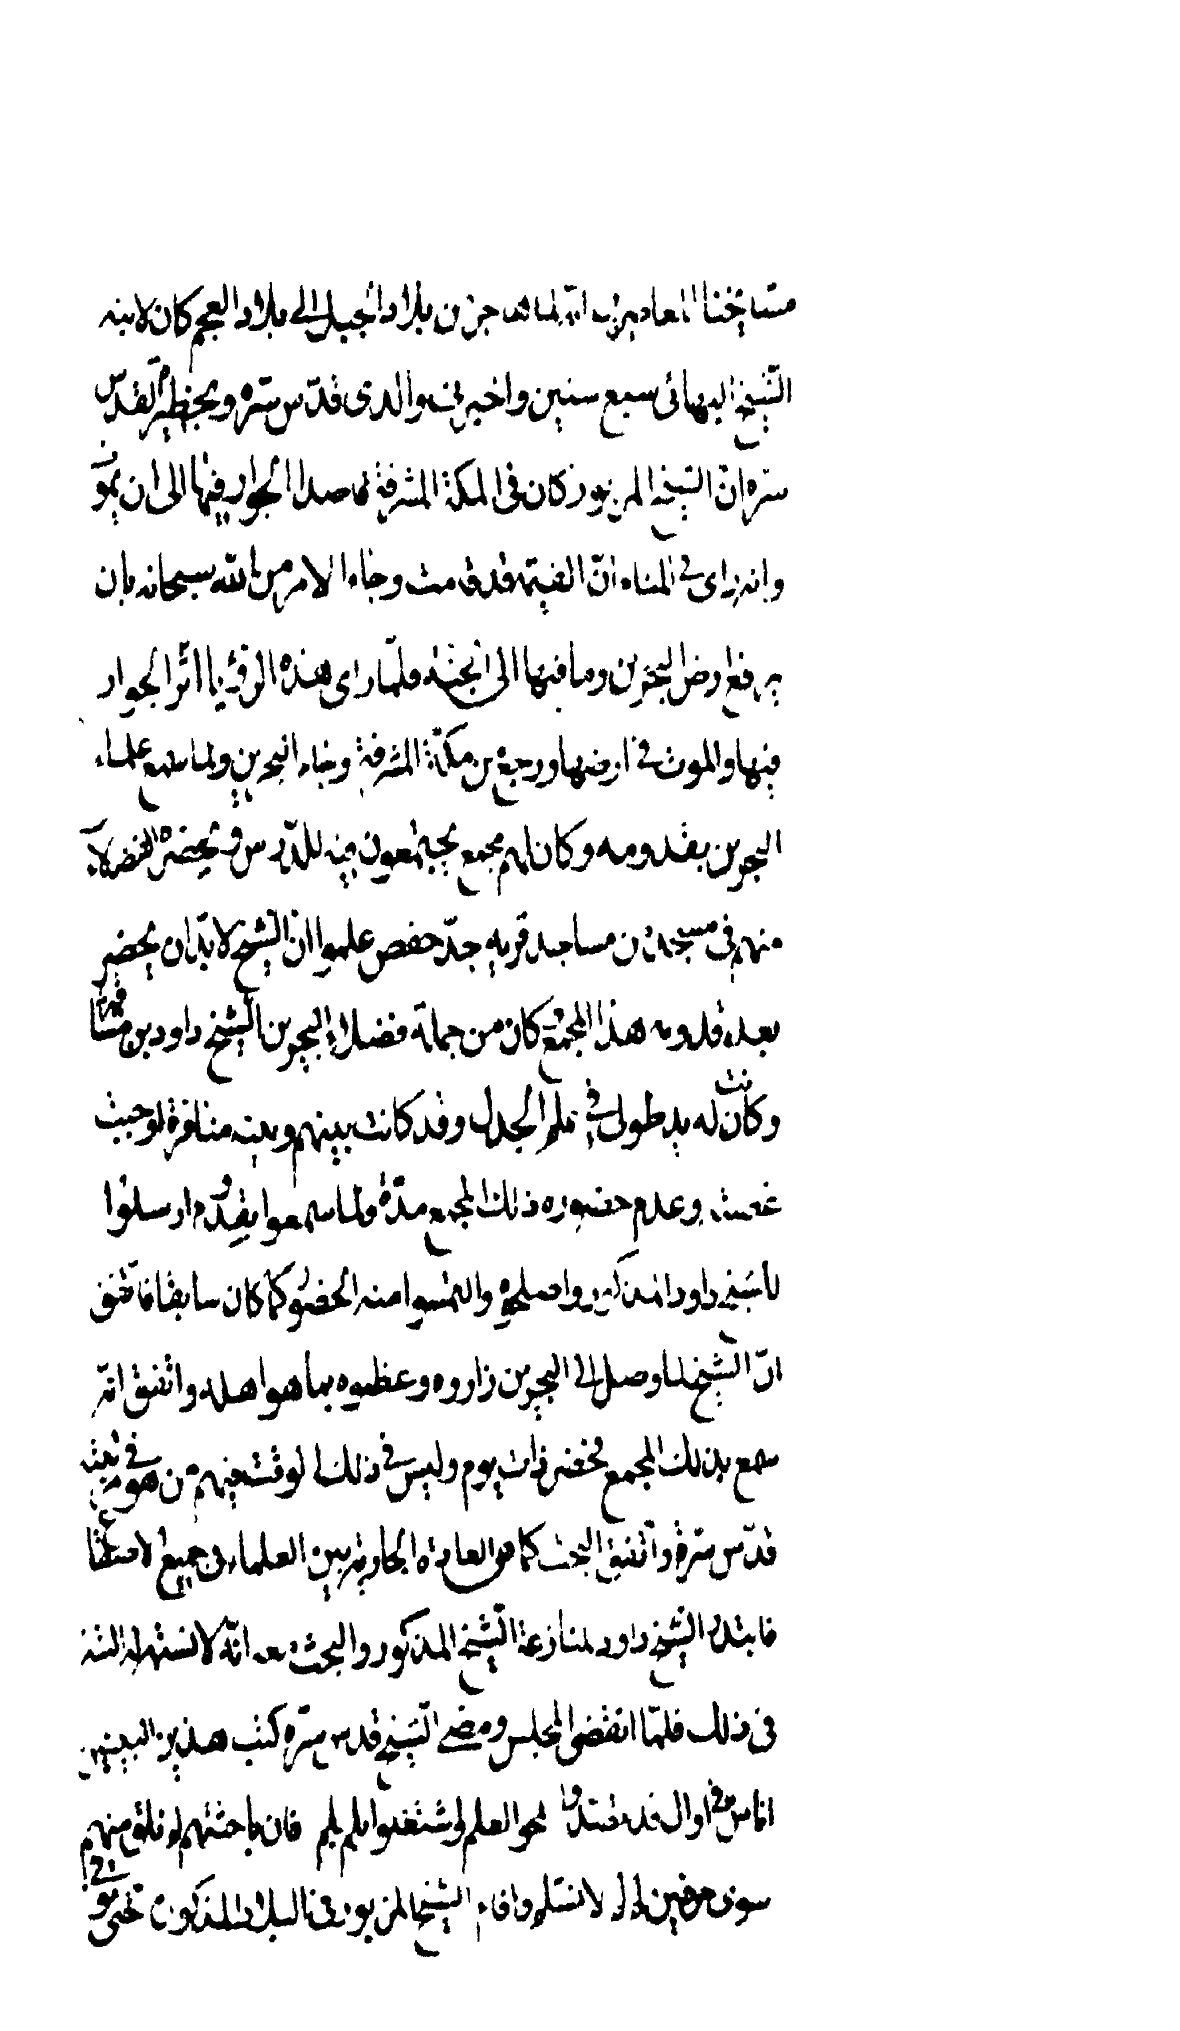 مشايخنا المعاصرين انه لما هاجر من بلاد الجبل الى بلاد العجم كان لابنه
الشيخ البهائى سبع سنين واخبرنى والدى قدّس سرّه وبحظيرة القدس
سرّه انّ الشيخ المزبور كان فى المكة المشرفة قاصدا الجوار فيها الى ان يموت
وانه راى في المنام انّ القيمة قد قامت وجاء الامر من الله سبحانه بان
يرفع ارض البحرين وما فيها الى الجنة فلمّا راى هذه الرؤيا اثر الجوار
فيها والموت في ارضها ورجع من مكّة المشرفة وجاء البحرين ولما سمع علماء
البحرين بقدومه وكان لهم مجمع يجتمعون فيه للدّرس ويحضره الفضلاء
منهم فى مسجد من مساجد قرية جدّ حفص علموا انّ الشيخ لا بدّ ان يحضر
بعد قدومه هذا المجمع كان من جملة فضلاء البحرين الشيخ داود بن
وكانت له يد طولى في علم الجدل وقد كانت بينهم وبينه منافرة اوجبت
وعدم حضوره ذلك المجمع مدّة ولما سمعوا بقدوم ارسلوا
للشيخ داود المذكور واصلحوه والتمسوا منه الحضور كما كان سابقا فاتفق
انّ الشيخ لما وصل الى البحرين زاروه وعظموه بما هو اهله واتفق انّه
سمع بذلك المجمع فحضر ذات يوم وليس في ذلك الوقت فيهم من هو في مرتبته
قدّس سرّه واتفق البحث كما هو العادة الجارية بين العلماء في جميع الاصقاع
فابتدا الشيخ داود لمنازعة الشيخ المذكور والبحث معه انّه لا
فى ذلك فلمّا انقضى المجلس ومضى الشيخ قدس سرّه كتب هذين البيتين
اناس في اوال قد تصدوا لمحو العلم واشتغلوا بلم لم فان باحثتهم لم تلق منهم
سوى حرفين لم لم لا نسلم واقام الشيخ المزبور في البلاد المذكورة حتى توفى